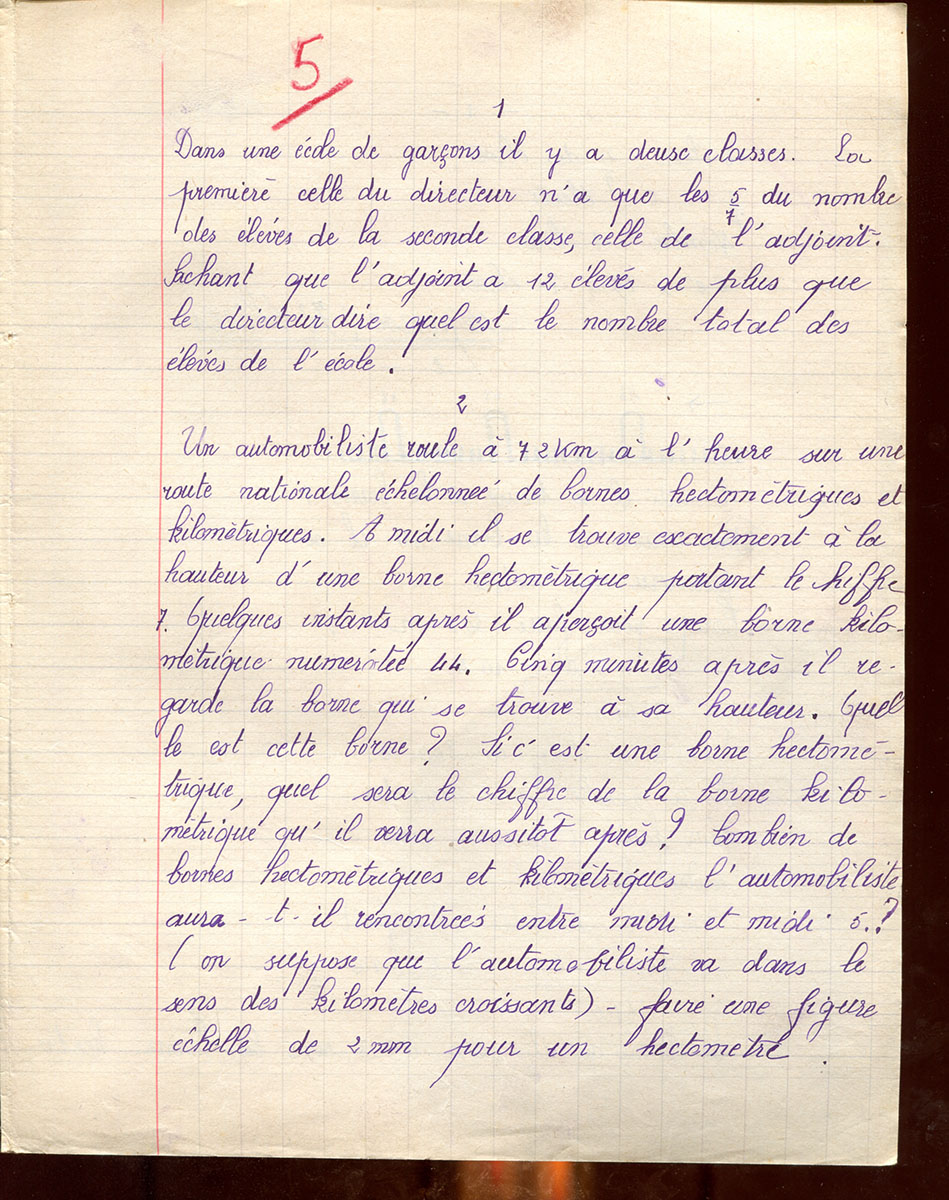 5
1
Dans une école de garçons il y a deuse classes. La
premiere celle du directeur n'a que les 5/7 du nombre
des élevés de la seconde classe, celle de l'adjoint.
Sachant que l'adjoint a 12 élevés de plus que
le directeur dire quel est le nombre total des
élevés de l'école.
2
Un automobiliste roule à 72 Km à l'heure sur une
route nationale échelonneé de bornes hectométriques et
kilométriques. A midi il se trouve esactement à la
hauteur d'une borne hectométrique portant le chiffre
7. Quelques instants après il aperçoit une borne kilo-
métrique numerotée 44. Cinq minutes après il re-
garde la borne qui se trouve à sa hauteur. Quel
le est cette borne? Si c'est une borne hectomé-
trique, quel sera le chiffre de la borne kilo-
métrique qu'il verra aussitôt après? Combien de
bornes hectométriques et kilométriques l'automobiliste
aura-t-il rencontreés entre midi et midi 5.?
(on suppose que l'automobiliste va dans le
sens des kilomètres croissants) - faire une figure
échelle de 2 mm pour un hectometre.